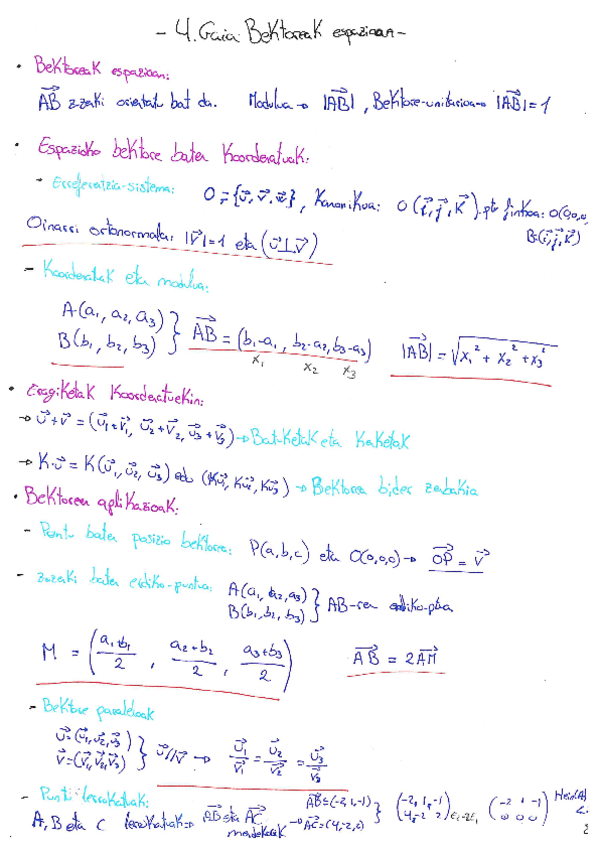 - 4. Gaia Bektoreak espazioan -
• Bektoreak espazioan:
AB⃗ zuzenki orientatu bat da. Modulua → |AB⃗|, Bektore-unitarioa → |AB⃗| = 1
• Espazioko bektore baten Koordenatuak:
- Erreferentzia-sistema: O = {u⃗, v⃗, w⃗}, Kanonikoa: O (i⃗, j⃗, k⃗) pto finkoa: O(0,0,0
B(i⃗, j⃗, k⃗)
Oinarri ortonormala: |v⃗| = 1 eta (u⃗ ⊥ v⃗)
- Koordenatuak eta modulua:
A(a₁, a₂, a₃)
B(b₁, b₂, b₃) } AB⃗ = (b₁-a₁, b₂-a₂, b₃-a₃) |AB⃗| = √x₁² + x₂² + x₃²
x₁ x₂ x₃
• Eragiketak Koordenatuekin:
→ u⃗+v⃗ = (u⃗₁+v⃗₁, u⃗₂+v⃗₂, u⃗₃+v⃗₃) → Batuketak eta Kenketak
→ K·u⃗ = K(u⃗₁, u⃗₂, u⃗₃) edo (Ku⃗₁, Ku⃗₂, Ku⃗₃) → Bektorea bider zenbakia
• Bektoreen aplikazioak:
- Puntu baten posizio bektorea: P(a,b,c) eta O(0,0,0) → OP⃗ = v⃗
- zuzenki baten erdiko-puntua: A(a₁, a₂, a₃)
B(b₁, b₂, b₃) } AB-ren erdiko-ptua
M = (a₁+b₁/2, a₂+b₂/2, a₃+b₃/2) AB⃗ = 2AM⃗
- Bektore paraleloak
u⃗=(u⃗₁,u⃗₂,u⃗₃)
v⃗=(v⃗₁,v⃗₂,v⃗₃) } u⃗//v⃗ → u⃗₁/v⃗₁ = u⃗₂/v⃗₂ = u⃗₃/v⃗₃
- Puntu lerrokatuak:
A, B eta C lerrokatuak → AB⃗ eta AC⃗ mendekoak → AB⃗=(-2,1,-1)
AC⃗=(4,-2,2) } (-2 1 -1 / 4 -2 2) (-2 1 -1 / 0 0 0)